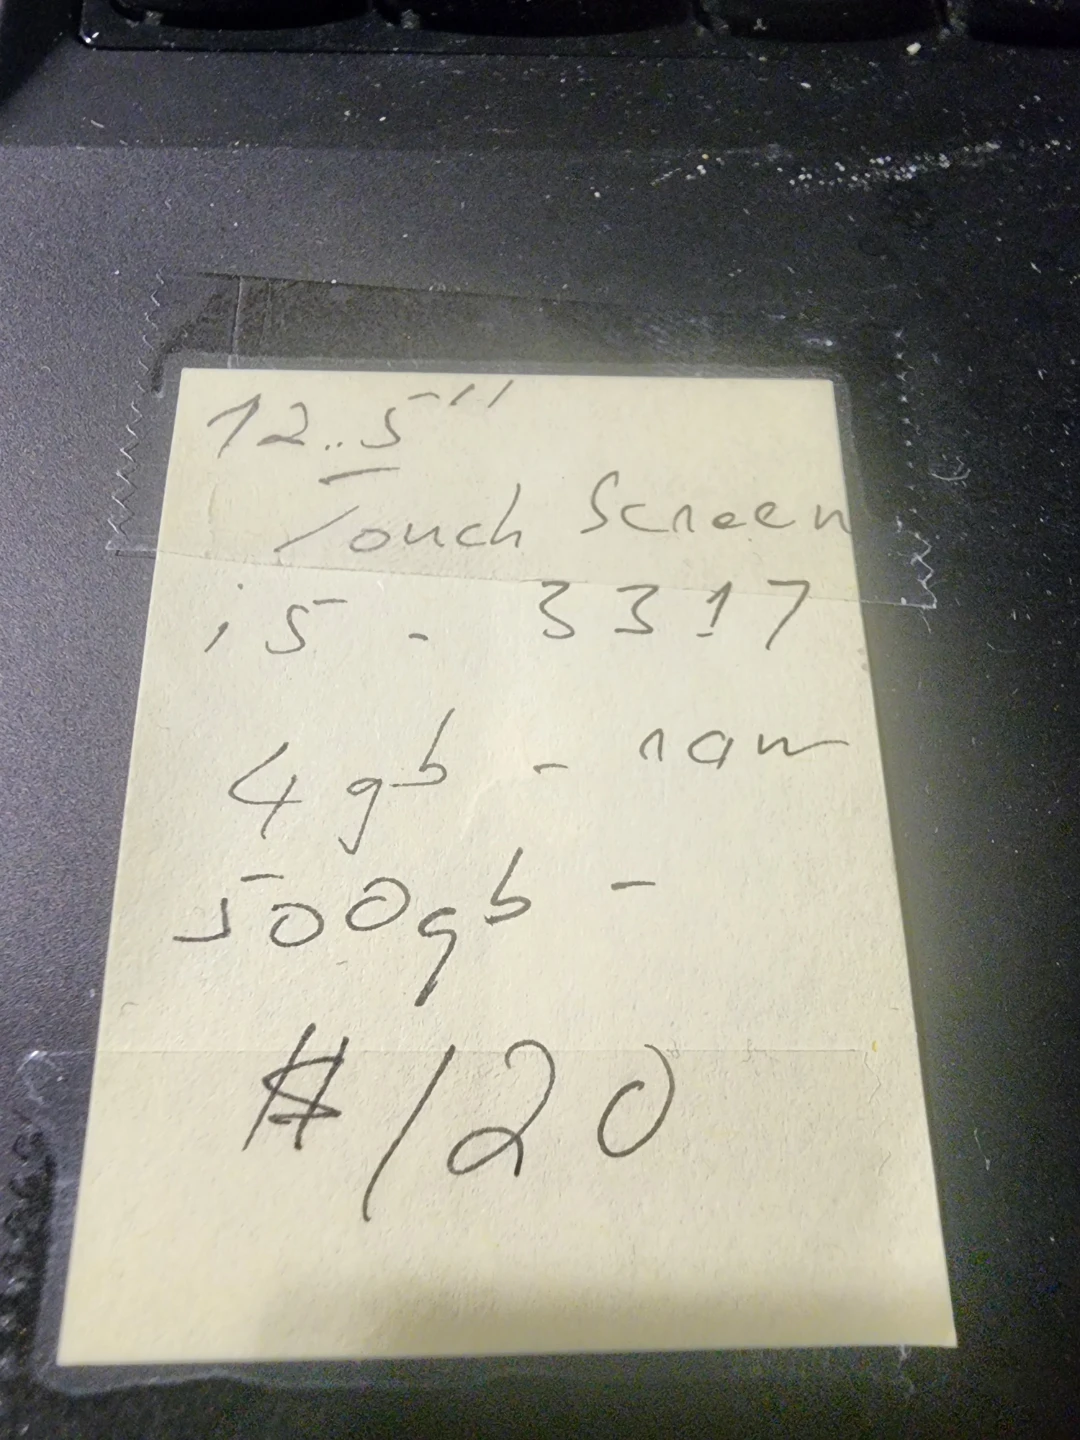 12..5"
Touch Screen
i5 - 3317
4gb - ram
500gb -
$120